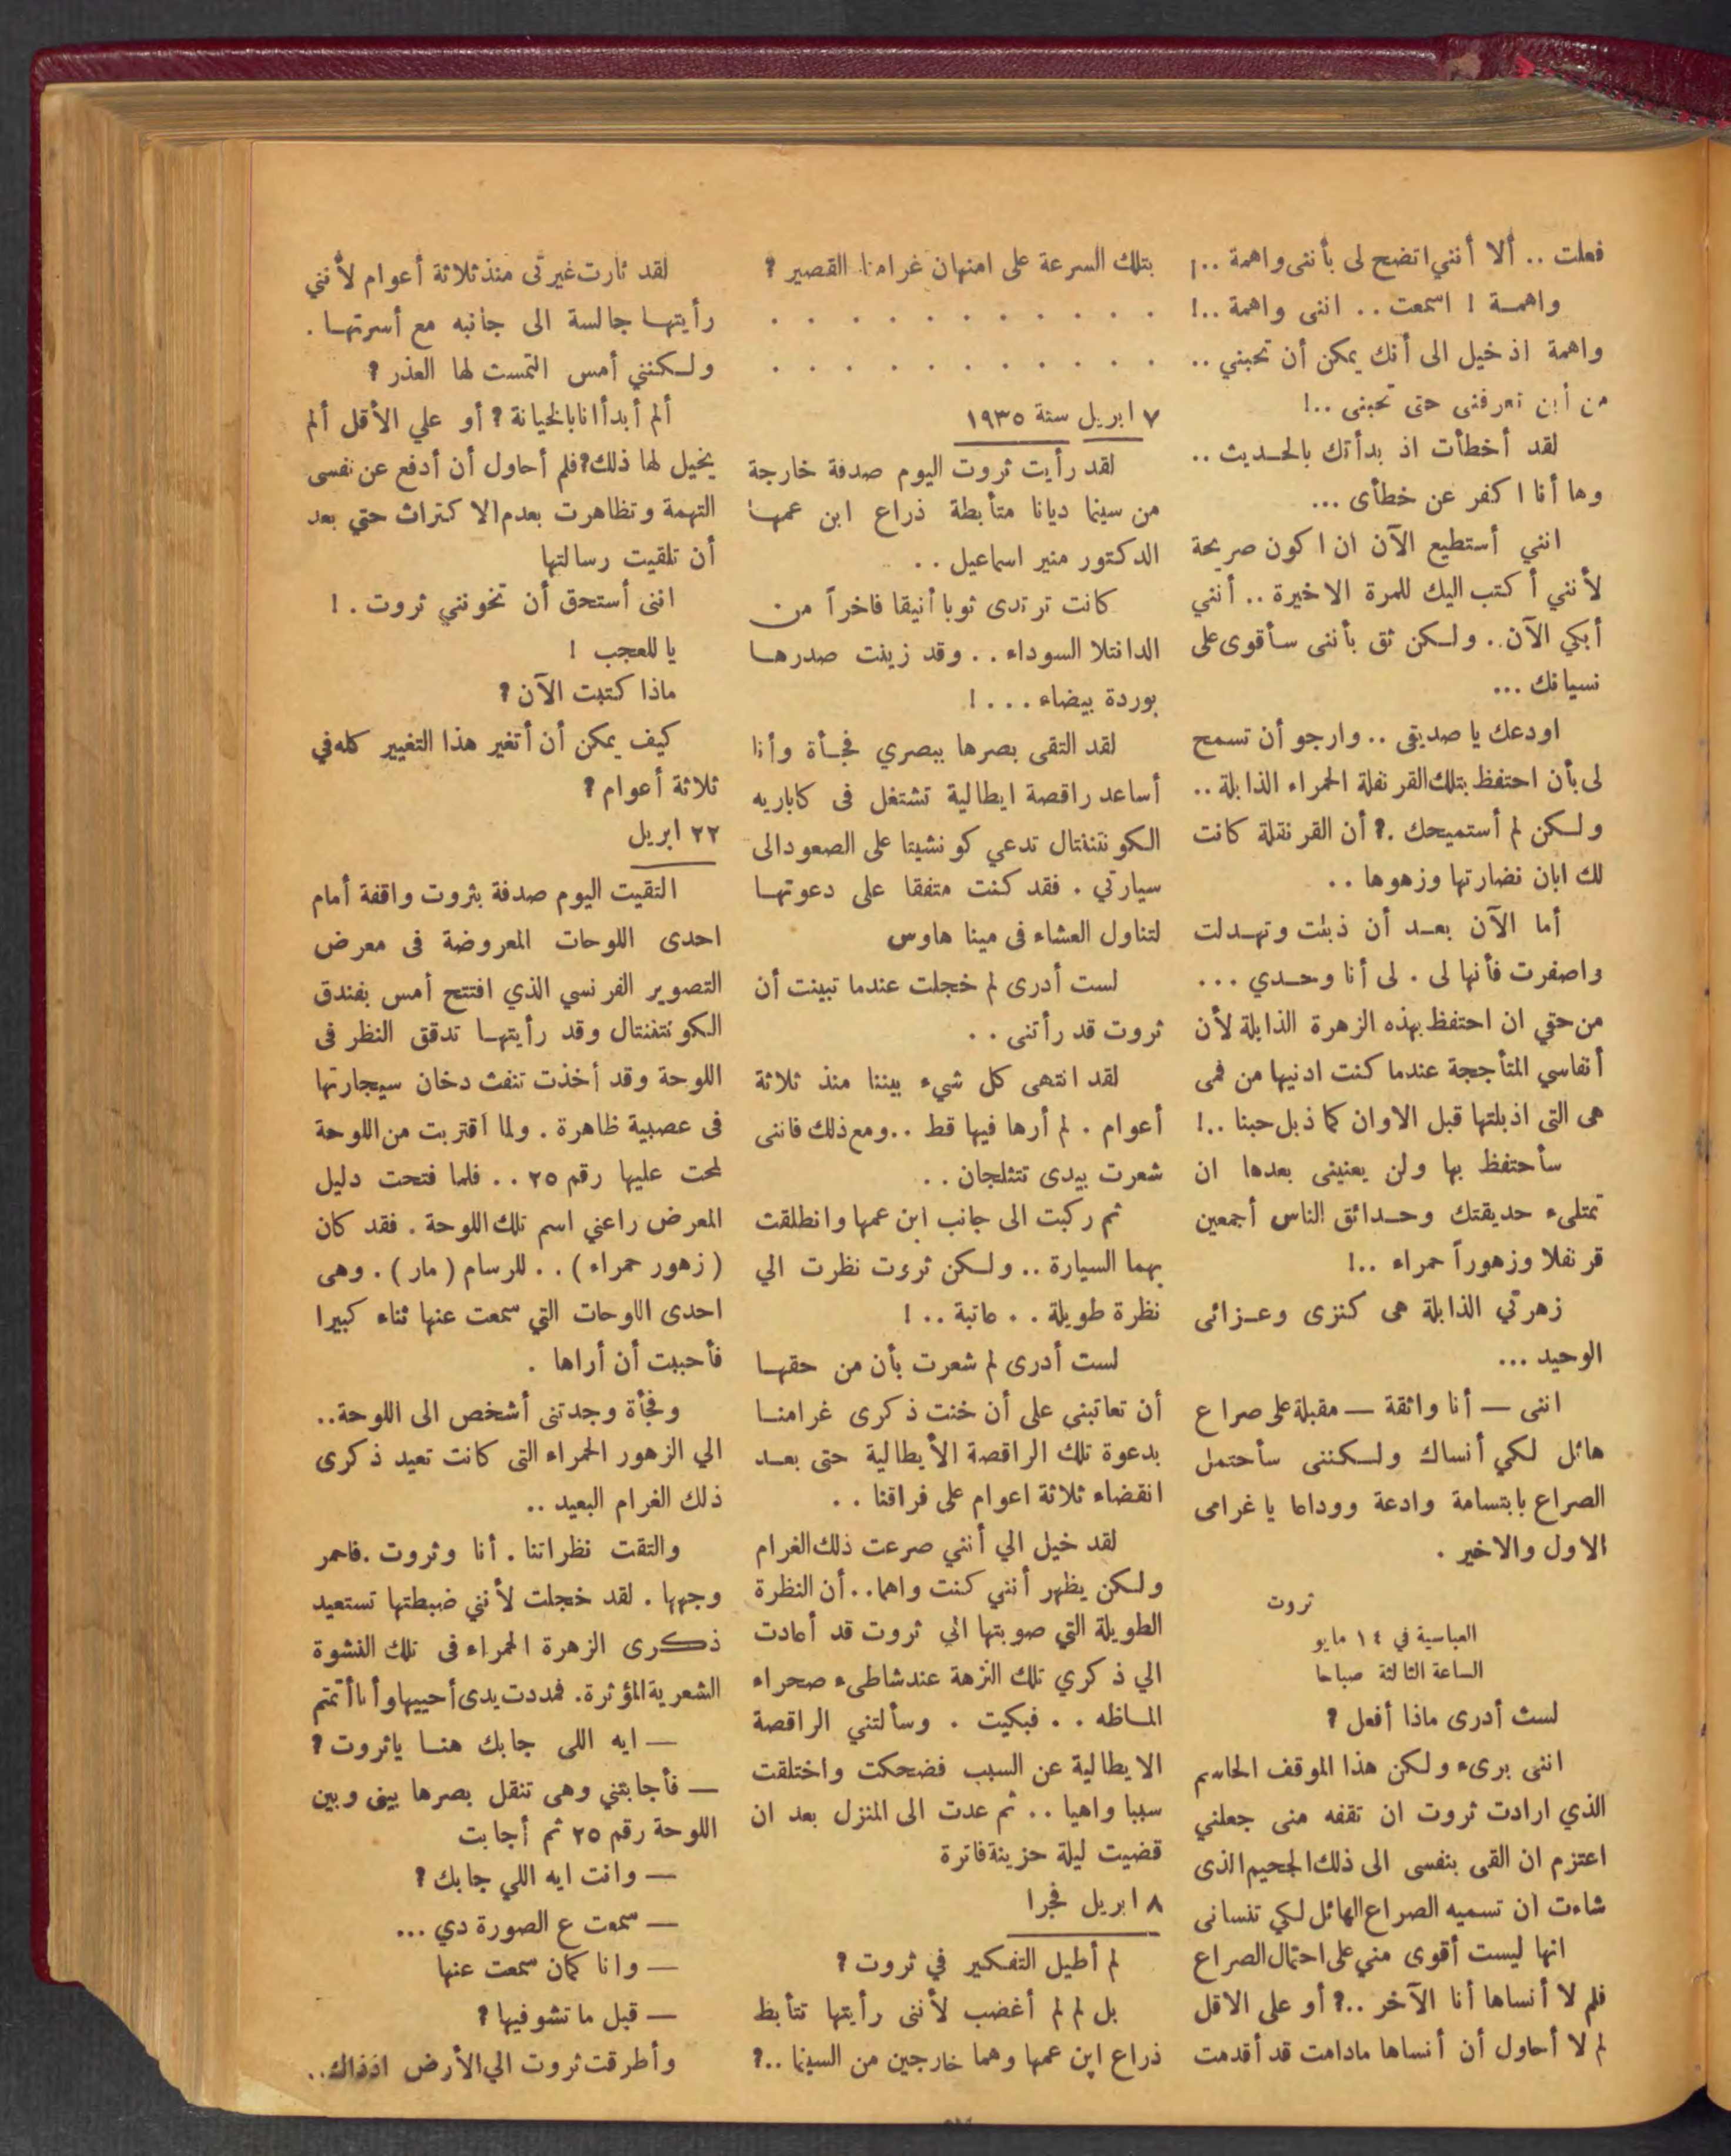 فعلت .. ألا أنني اتضح لى بأننى واهمة ..!
واهمة ! اسمعت .. اننى واهمة ..!
واهمة اذ خيل الى أنك يمكن أن تحبني ..
من أين تعرفنى حتى تحبنى ..!
لقد أخطأت اذ بدأتك بالحديث ..
وها أنا اكفر عن خطأى ...
انني أستطيع الآن ان اكون صريحة
لأنني أكتب اليك للمرة الاخيرة .. أنني
أبكي الآن .. ولكن ثق بأننى سأقوى على
نسيانك ...
اودعك يا صديقى .. وارجو أن تسمح
لى بأن احتفظ بتلك القرنفلة الحمراء الذابلة ..
ولكن لم أستميحك .؟ أن القرنفلة كانت
لك ابان نضارتها وزهوها ..
أما الآن بعد أن ذبلت وتهدلت
واصفرت فأنها لى . لى أنا وحدي ...
من حقي ان احتفظ بهذه الزهرة الذابلة لأن
أنفاسي المتأججة عندما كنت ادنيها من فمى
هى التى اذبلتها قبل الاوان كما ذبل حبنا ..!
سأحتفظ بها ولن يعنينى بعدها ان
تمتلىء حديقتك وحدائق الناس أجمعين
قرنفلا وزهوراً حمراء ..!
زهرتي الذابلة هى كنزى وعزائى
الوحيد ...
اننى — أنا واثقة — مقبلة على صراع
هائل لكي أنساك ولكننى سأحتمل
الصراع بابتسامة وادعة ووداعا يا غرامى
الاول والاخير .
ثروت
العباسية في ١٤ مايو
الساعة الثالثة صباحا
لست أدرى ماذا أفعل ؟
اننى برىء ولكن هذا الموقف الحاسم
الذي ارادت ثروت ان تقفه منى جعلني
اعتزم ان القى بنفسى الى ذلك الجحيم الذى
شاءت ان تسميه الصراع الهائل لكي تنسانى
انها ليست أقوى مني على احتمال الصراع
فلم لا أنساها أنا الآخر ..؟ أو على الاقل
لم لا أحاول أن أنساها مادامت قد أقدمت
بتلك السرعة على امتهان غرامنا القصير ؟
. . . . . . . . . . .
. . . . . . . . . . .
٧ ابريل سنة ١٩٣٥
لقد رأيت ثروت اليوم صدفة خارجة
من سينما ديانا متأبطة ذراع ابن عمها
الدكتور منير اسماعيل ..
كانت ترتدى ثوبا أنيقا فاخراً من
الدانتلا السوداء .. وقد زينت صدرها
بوردة بيضاء ... !
لقد التقى بصرها ببصري فجأة وأنا
أساعد راقصة ايطالية تشتغل فى كاباريه
الكونتننتال تدعي كونشيتا على الصعود الى
سيارتي . فقد كنت متفقا على دعوتها
لتناول العشاء فى مينا هاوس
لست أدرى لم خجلت عندما تبينت أن
ثروت قد رأتنى ..
لقد انتهى كل شيء بيننا منذ ثلاثة
أعوام . لم أرها فيها قط .. ومع ذلك فاننى
شعرت بيدى تتثلجان ..
ثم ركبت الى جانب ابن عمها وانطلقت
بهما السيارة .. ولكن ثروت نظرت الي
نظرة طويلة .. عاتبة .. !
لست أدرى لم شعرت بأن من حقها
أن تعاتبني على أن خنت ذكرى غرامنا
بدعوة تلك الراقصة الأيطالية حتى بعد
انقضاء ثلاثة اعوام على فراقنا ..
لقد خيل الي أنني صرعت ذلك الغرام
ولكن يظهر أنني كنت واهما .. أن النظرة
الطويلة التي صوبتها الي ثروت قد أعادت
الي ذكري تلك النزهة عند شاطىء صحراء
الماظه .. فبكيت . وسألتني الراقصة
الايطالية عن السبب فضحكت واختلقت
سببا واهيا .. ثم عدت الى المنزل بعد ان
قضيت ليلة حزينة فاترة
٨ ابريل فجرا
لم أطيل التفكير في ثروت ؟
بل لم لم أغضب لأننى رأيتها تتأبط
ذراع ابن عمها وهما خارجين من السينما ..؟
لقد ثارت غيرتى منذ ثلاثة أعوام لأنني
رأيتها جالسة الى جانبه مع أسرتها .
ولكنني أمس التمست لها العذر ؟
ألم أبدأ انا بالخيانة ؟ أو علي الأقل ألم
يخيل لها ذلك ؟ فلم أحاول أن أدفع عن نفسى
التهمة وتظاهرت بعدم الاكتراث حتي بعد
أن تلقيت رسالتها
اننى أستحق أن تخونني ثروت . !
يا للعجب !
ماذا كتبت الآن ؟
كيف يمكن أن أتغير هذا التغيير كله في
ثلاثة أعوام ؟
٢٢ ابريل
التقيت اليوم صدفة بثروت واقفة أمام
احدى اللوحات المعروضة فى معرض
التصوير الفرنسي الذي افتتح أمس بفندق
الكونتننتال وقد رأيتها تدقق النظر فى
اللوحة وقد أخذت تنفث دخان سيجارتها
فى عصبية ظاهرة . ولما اقتربت من اللوحة
لمحت عليها رقم ٢٥ .. فلما فتحت دليل
المعرض راعني اسم تلك اللوحة . فقد كان
( زهور حمراء ) .. للرسام ( مار ) . وهى
احدى اللوحات التي سمعت عنها ثناء كبيرا
فأحببت أن أراها .
وفجأة وجدتنى أشخص الى اللوحة ..
الي الزهور الحمراء التى كانت تعيد ذكرى
ذلك الغرام البعيد ..
والتقت نظراتنا . أنا وثروت . فاحمر
وجهها . لقد خجلت لأنني ضبطتها تستعيد
ذكرى الزهرة الحمراء فى تلك النشوة
الشعرية المؤثرة . فمددت يدى أحييها وأنا أتمتم
— ايه اللى جابك هنا ياثروت ؟
— فأجابتني وهى تنقل بصرها بينى وبين
اللوحة رقم ٢٥ ثم أجابت
— وانت ايه اللي جابك ؟
— سمعت ع الصورة دي ...
— وانا كمان سمعت عنها
— قبل ما تشوفيها ؟
وأطرقت ثروت الي الأرض اذذاك ..